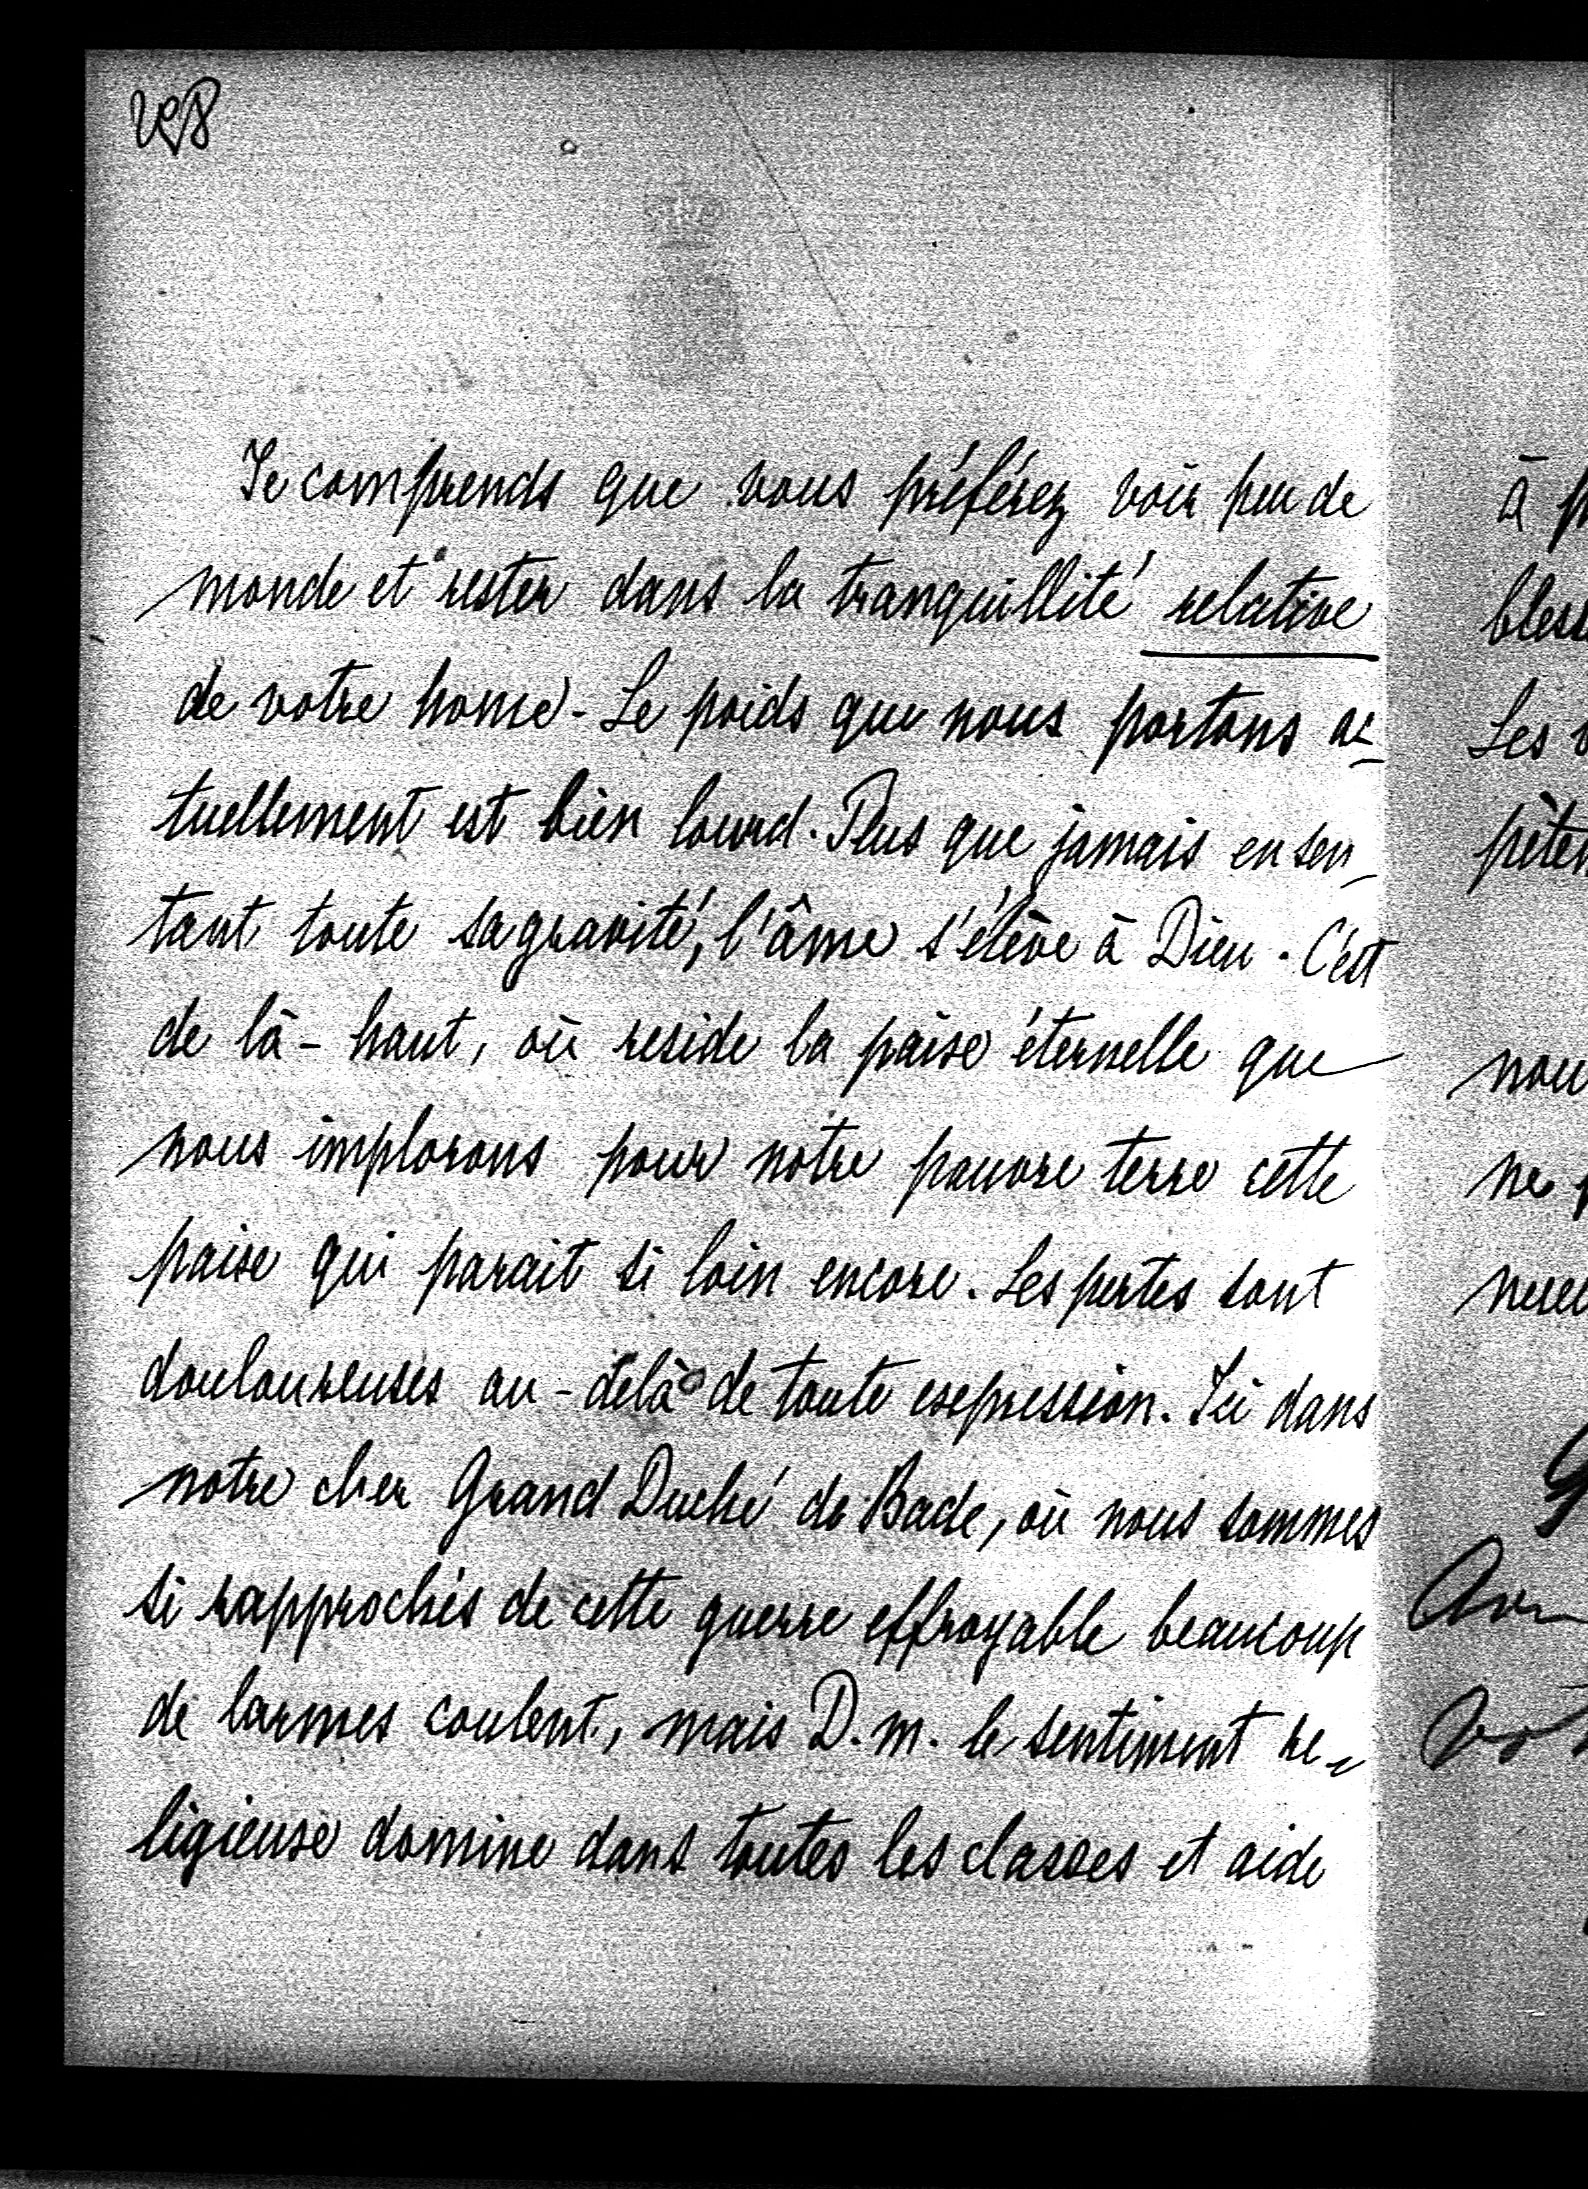 Je comprends que vous préférez voir peu de
monde et rester dans la tranquillité relative
de votre home - Le poids que nous portons ac-
tuellement est bien lourd. Plus que jamais en sen-
tant toute sa gravité, l'âme s'élève à Dieu. C'est
de là-haut, où reside la paix éternelle que
nous implorons pour notre pauvre terre cette
paix qui parait si loin encore. Les pertes sont
douloureuses au-delà de toute expression. Ici dans
notre cher Grand Duché de Bade, où nous sommes
si rapprochés de cette guerre effroyable beaucoup
de larmes coulent, mais D. m. le sentiment re-
ligieux domine dans toutes les classes et aide
à
Les